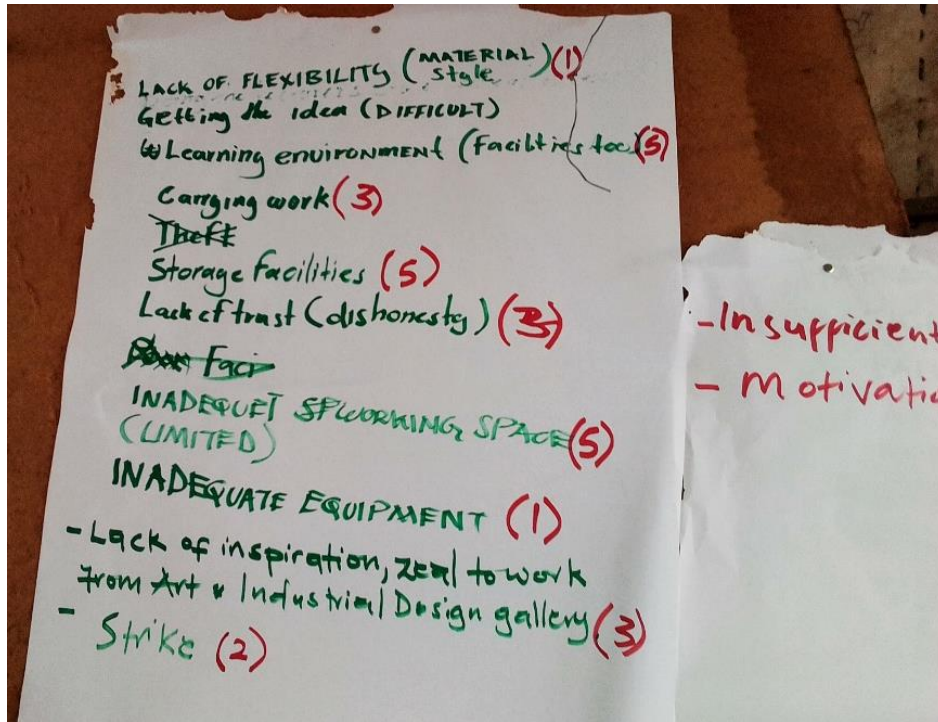 LACK OF FLEXIBILITY (MATERIAL) (1)
style
Getting the idea (DIFFICULT)
Learning environment (Facilties too) (5)
Carrging work (3)
Theft
Storage Facilities (5)
Lack of trust (dishonesty) (3)
Faci
INADEQUET SPWORKING SPACE (5)
(LIMITED)
INADEQUATE EQUIPMENT (1)
- Lack of inspiration, zeal to work
from Art & Industrial Design gallery (3)
- Strike (2)
- Insufficient
- Motivatio